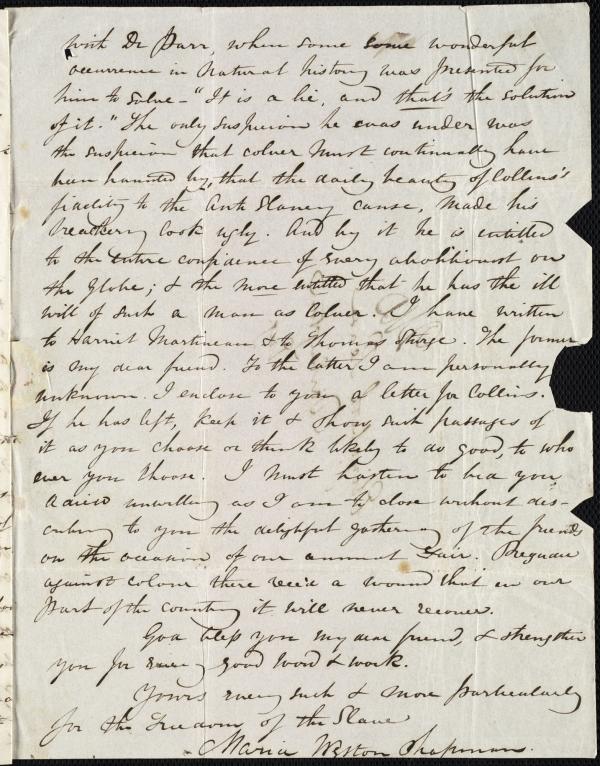 with Dr Parr, when some some wonderful
occurrence in Natural history was presented for
him to solve - "It is a lie, and that's the solution
of it." The only suspicion he was under was
the suspicion that Colver must continually have
been haunted by, that the daily beauty of Collins's
fidelity to the Anti Slavery cause, made his
treachery look ugly. And by it he is entitled
to the entire confidence of every abolitionist on
the Globe; & the more entitled that he has the ill
will of such a man as Colver. I have written
to Harriet Martineau & to Thomas Sturge. The former
is my dear friend. To the latter I am personally
unknown. I enclose to you a letter for Collins.
If he has left, keep it & show such passages of
it as you choose or think likely to do good, to who
ever you choose. I must hasten to bid you
adieu unwilling as I am to close without des-
cribing to you the delightful gathering of the friends
on the occasion of our annual Fair. Prejudice
against colour there recd a wound that in our
part of the country it will never recover.
God bless you my dear friend, & strengthen
you for every good word & work.
Yours every such & more particularly
for the Freedom of the Slave
Maria Weston Chapman.